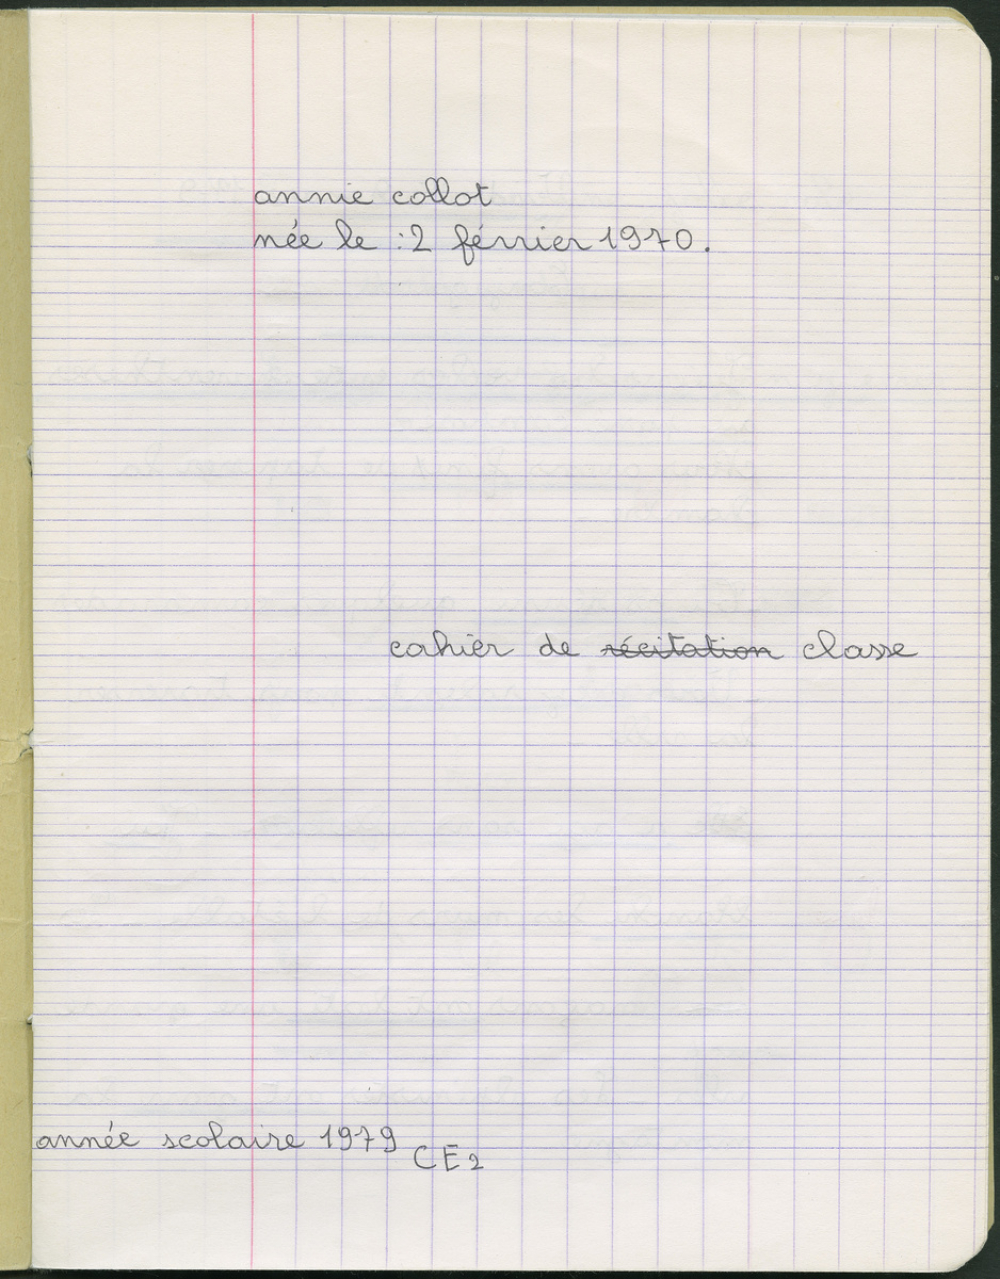 annie collot
née le : 2 février 1970.
cahier de récitation classe
année scolaire 1979 CE2